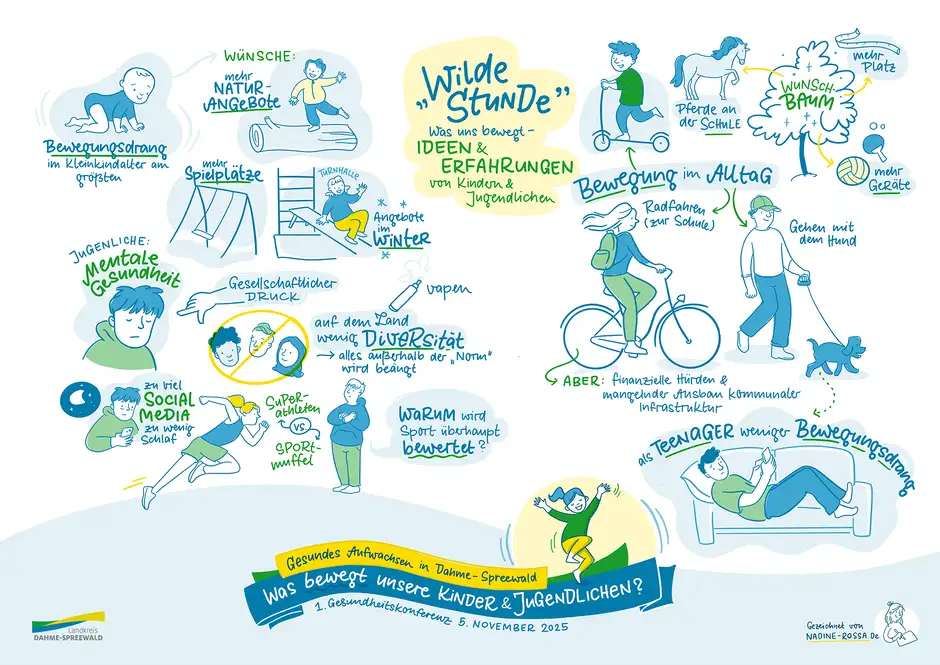 WÜNSCHE:
mehr
NATUR-
ANGEBOTE
Bewegungsdrang
im Kleinkindalter am
größten
mehr
Spielplätze
TURNHALLE
Angebote
im
WINTER
„Wilde
Stunde”
Was uns bewegt -
IDEEN &
ERFAHRUNGEN
von Kindern &
Jugendlichen
Pferde an
der SCHULE
WUNSCH-
BAUM
mehr
Platz
mehr
Geräte
Bewegung im Alltag
Radfahren
(zur Schule)
Gehen mit
dem Hund
ABER: finanzielle Hürden &
mangelnder Ausbau kommunaler
Infrastruktur
als TEENAGER weniger Bewegungsdrang
JUGENLICHE:
Mentale
Gesundheit
Gesellschaftlicher
DRUCK
vapen
auf dem Land
wenig Diversität
→ alles außerhalb der „Norm"
wird beäugt
zu viel
SOCIAL
MEDIA
zu wenig
Schlaf
SUPER-
athleten
VS.
SPORT-
muffel
WARUM wird
Sport überhaupt
bewertet?
Gesundes Aufwachsen in Dahme-Spreewald
Was bewegt unsere KINDER & JUGENDLICHEN?
1. Gesundheitskonferenz 5. NOVEMBER 2025
Landkreis
DAHME-SPREEWALD
Gezeichnet von
NADINE-ROSSA.De